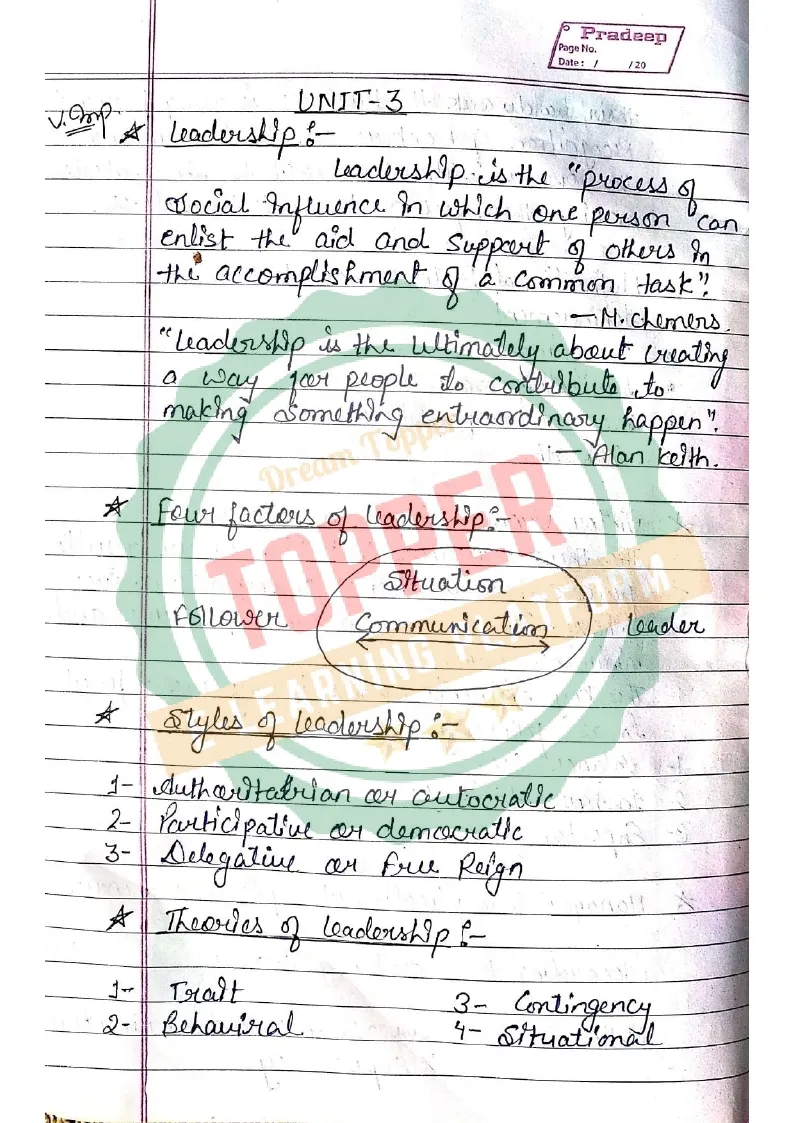 Pradeep
Page No.
Date: / /20
UNIT-3
V.Imp
☆ Leadership :-
Leadership is the "process of
Social Influence in which one person can
enlist the aid and support of others in
the accomplishment of a common task".
— M. Chemers.
"Leadership is the ultimately about creating
a way for people to contribute to
making something entraordinary happen".
— Alan Keith.
☆ Four factors of leadership :-
Situation
Follower Communication Leader
☆ Styles of leadership :-
1- Authoritatrian or autocratic
2- Participative or democratic
3- Delegative or Free Reign
☆ Theories of leadership :-
1- Trait 3- Contingency
2- Behaviral 4- Situational
Dream Topper
TOPPER
E-LEARNING PLATFORM